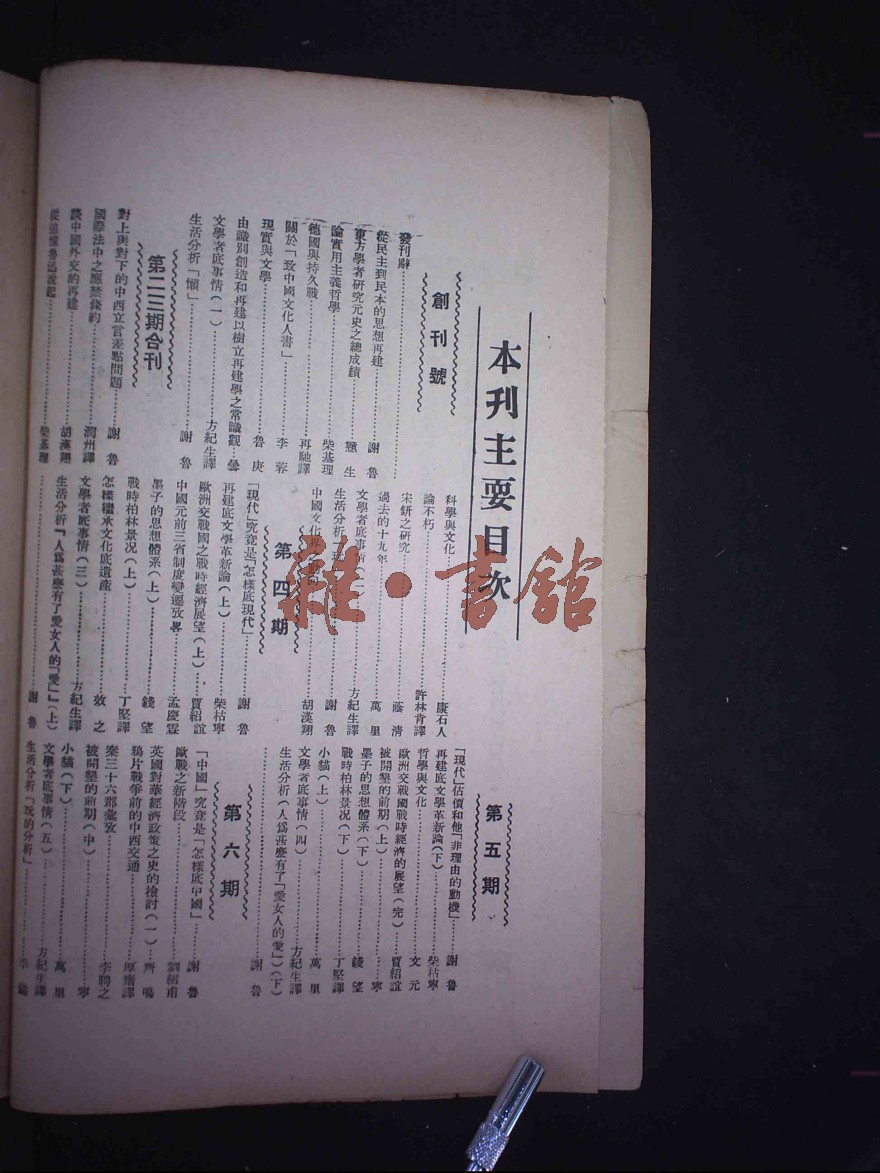 本刊主要目次
創刊號
發刊辭
從民主到民本的思想再建 謝魯
東方學者研究元史之總成績 生
論實用主義哲學 柴基理
德國與持久戰 再馳譯
關於「致中國文化人書」 李蓉
現實與文學 魯庚
由識別創造和再建以樹立再建學之常識觀
文學者底事情(一) 方紀生譯
生活分析「懶」 謝魯
第二三期合刊
對上與對下的中西立言差點問題 謝魯
國際法中之應禁條約 潤州譯
談中國外交的再建 胡漢翔
從追懷魯迅說起 柴基理
科學與文化 康石人
論不朽 許林肯譯
宋鈃之研究 蔭清
過去的十九年 萬里
文學者底事情 方紀生譯
生活分析 謝魯
中國文化 胡漢翔
第四期
「現代」究竟是「怎樣底現代」 謝魯
再建底文學革新論(上) 柴枯寧
歐洲交戰國之戰時經濟展望(上) 賈紹誼
中國元前三省制度變遷攷畧 孟慶霖
墨子的思想體系(上) 錢望
戰時柏林景況(上) 丁堅譯
怎樣繼承文化底遺產 效之
文學者底事情(三) 方紀生譯
生活分析『人爲甚麼有了愛女人的「愛」』(上) 謝魯
第五期
「現代」估價和他「非理由的動機」 謝魯
再建底文學革新論(下) 柴枯寧
哲學與文化 文元
歐洲交戰國戰時經濟的展望(完) 賈紹誼
被開墾的前期(上) 寧
墨子的思想體系(下) 錢望
戰時柏林景況(下) 丁堅譯
小貓(上) 萬里
文學者底事情(四) 方紀生譯
生活分析(人爲甚麼有了「愛女人的愛」)(下) 謝魯
第六期
「中國」究竟是「怎樣底中國」 謝魯
歐戰之新階段 劉紹甫
英國對華經濟政策之史的檢討(一) 齊鳴
鴉片戰爭前的中西交通 厚齋譯
秦三十六郡彙攷 李聘之
被開墾的前期(中) 寧
小貓(下) 萬里
文學者底事情(五) 方紀生譯
生活分析「玩的分析」 李
雜·書館